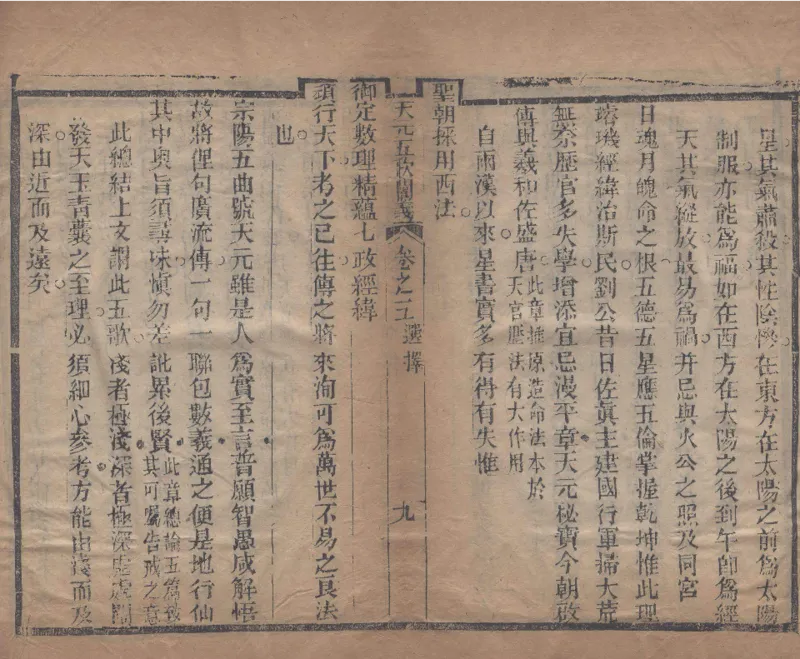 星其氣肅殺其性陰慘在東方在太陽之前為太陽
制服亦能為福如在西方在太陽之後到午卽為經
天其氣縱放最易為禍并忌與火公之照及同宮
日魂月魄命之根五德五星應五倫掌握乾坤惟此理
璿璣經緯治斯民劉公昔日佐眞主建國行軍掃大荒
無奈歷官多失學增添宜忌漫平章天元秘寶今朝啟
傳與羲和佐盛唐此章推原造命法本於天官歷法有大作用
自兩漢以來星書實多有得有失惟
聖朝採用西法
天元五歌闡義 卷之五 選擇 九
御定數理精蘊七政經緯
頒行天下考之已往傳之將來洵可為萬世不易之良法
也
宗陽五曲號天元雖是人為實至言普願智愚咸解悟
故將俚句廣流傳一句一聯包數義通之便是地行仙
其中奧旨須尋味愼勿差訛累後賢此章總論五篇致其可囑告戒之意
此總結上文謂此五歌淺者極淺深者極深處處闡
發天玉青囊之至理必須細心參考方能由淺而及
深由近而及遠矣